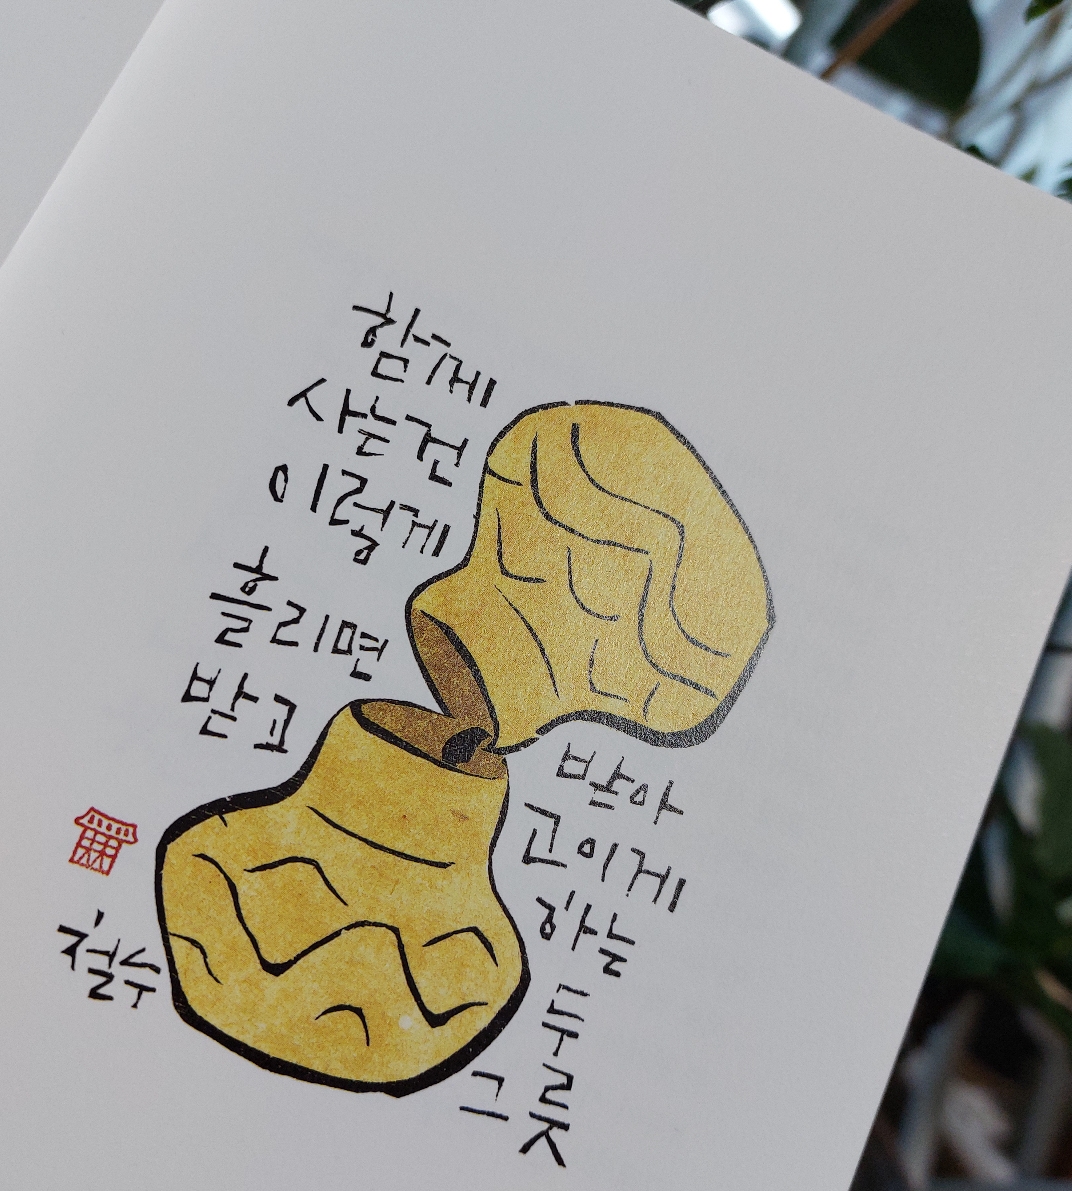 함께
사는건
이렇게
흘리면
받고
받아
고이게
하는
두
그릇
철수